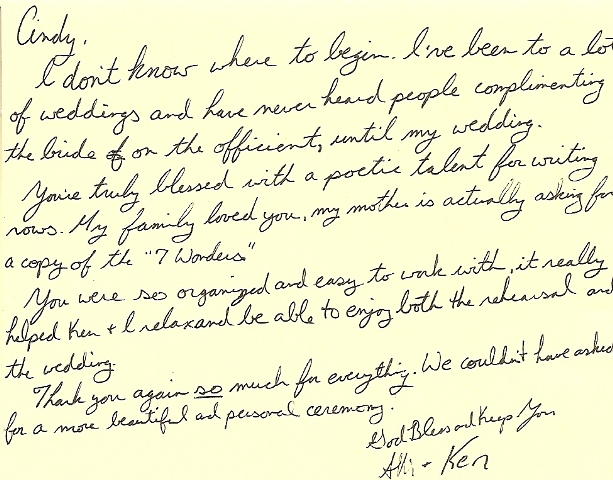 Cindy,
I don't know where to begin. I've been to a lot
of weddings and have never heard people complimenting
the bride of on the officient, until my wedding.
You're truly blessed with a poetic talent for writing
vows. My family loved you, my mother is actually asking for
a copy of the "7 Wonders"
You were so organized and easy to work with, it really
helped Ken + I relax and be able to enjoy both the rehearsal and
the wedding
Thank you again so much for everything. We couldn't have asked
for a more beautiful and personal ceremony.
God Bless and Keep You
+ Ken